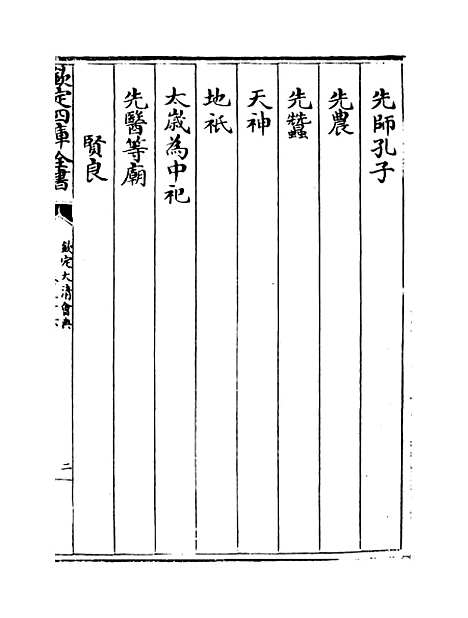 先師孔子
先農
先蠶
天神
地祇
太歲為中祀
先醫等廟
賢良
欽定四庫全書
欽定大清會典
二